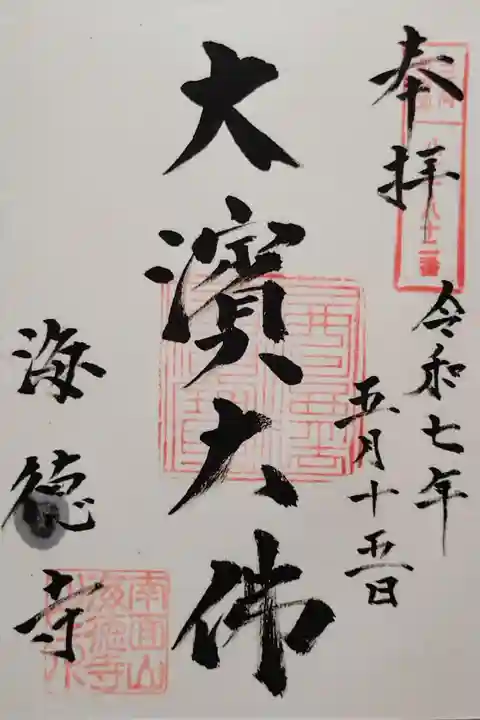 奉拝
令和七年
五月十五日
大濱大佛
海徳寺
南面山
海徳寺